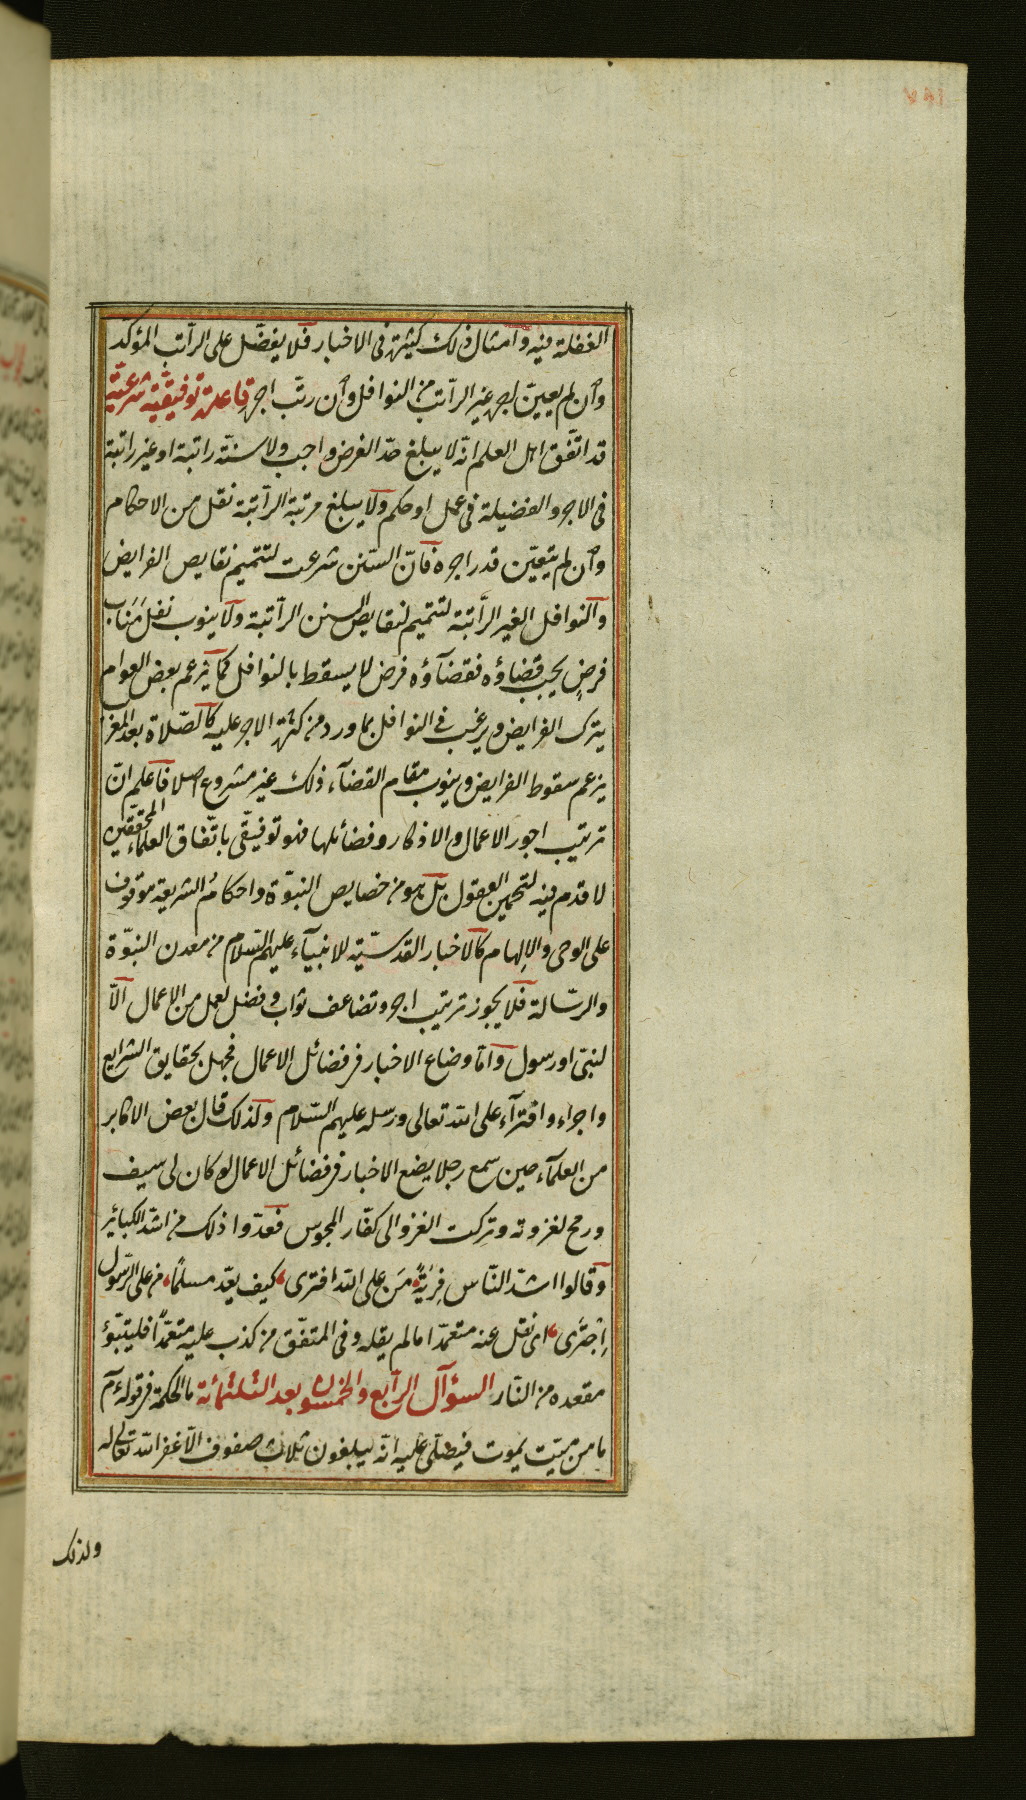 الغفلة فيه وامثال ذلك كثيرة فى الاخبار فلا يفضّل على الرآتب المؤكد
وان لم يعيّن اجر غير الرآتب من النوافل وان رتّب اجر قاعدة توفيقيّة شرعيّة
قد اتّفق اهل العلم انّه لا يبلغ حدّ الفرض واجب ولا سنّة راتبة او غير راتبة
فى الاجر والفضيلة فى عمل او حكم ولا يبلغ مرتبة الرآتبة نفل من الاحكام
وان لم يتعيّن قدر اجره فانّ السّنن شرعت لتتميم نقايص الفرايض
والنوافل الغير الرآتبة لتتميم لنقايص السنن الرآتبة ولا ينوب نفل مَنَاب
فرضٍ يجب قضاؤه فقضآؤه فرض لا يسقط بالنوافل كما يزعم بعض العوام
يترك الفرايض ويرغب فى النوافل بما ورد من كثرة الاجر عليه كالصّلاة بعد المغرب
يزعم سقوط الفرايض وينوب مقام القضآء ذلك غير مشروع اصلا فاعلم انّ
ترتيب اجور الاعمال والاذكار وفضائلها فهو توفيقّى باتّفاق العلمآء المحقّقين
لا قدم فيه لتخمين العقول بل هو من خصايص النبوّة واحكامُ الشريعة موقوف
على الوحى والإلهام كالاخبار القدسّية للانبيآء عليهم السّلام من معدن النبوّة
والرسّالة فلا يجوز ترتيب اجر وتضاعف ثواب وفضل لعمل من الاعمال الاّ
لنبىّ او رسول وامّا وضاع الاخبار فى فضائل الاعمال فجهل بحقايق الشرايع
واجراء وافترآء على الله تعالى ورسله عليهم السّلام ولذلك قال بعض الاكابر
من العلمآء حين سمع رجلا يضع الاخبار فى فضائل الاعمال لو كان لى سيف
ورمح لغزوته وتركت الغزو الى كفّار المجوس فعدّوا ذلك من اشدّ الكبائر
وقالوا اشدّ النّاس فِريَةً مَن على الله افترى كيف يعدّ مسلمًا من على الرّسول
اِجتَرى اى نقل عنه متعمّدا ما لم يقله وفى المتفّق من كذب عليه متعمّدًا فليتبّوؤ
مقعده من النّار السؤآل الرآبع والخمسون بعد الثلثمائة ما الحكمة فى قوله عم
ما من ميّت يموت فيصلّى عليه انّه يبلغون ثلاث صفوف الاّ غفر الله تعالى له
ولذلك